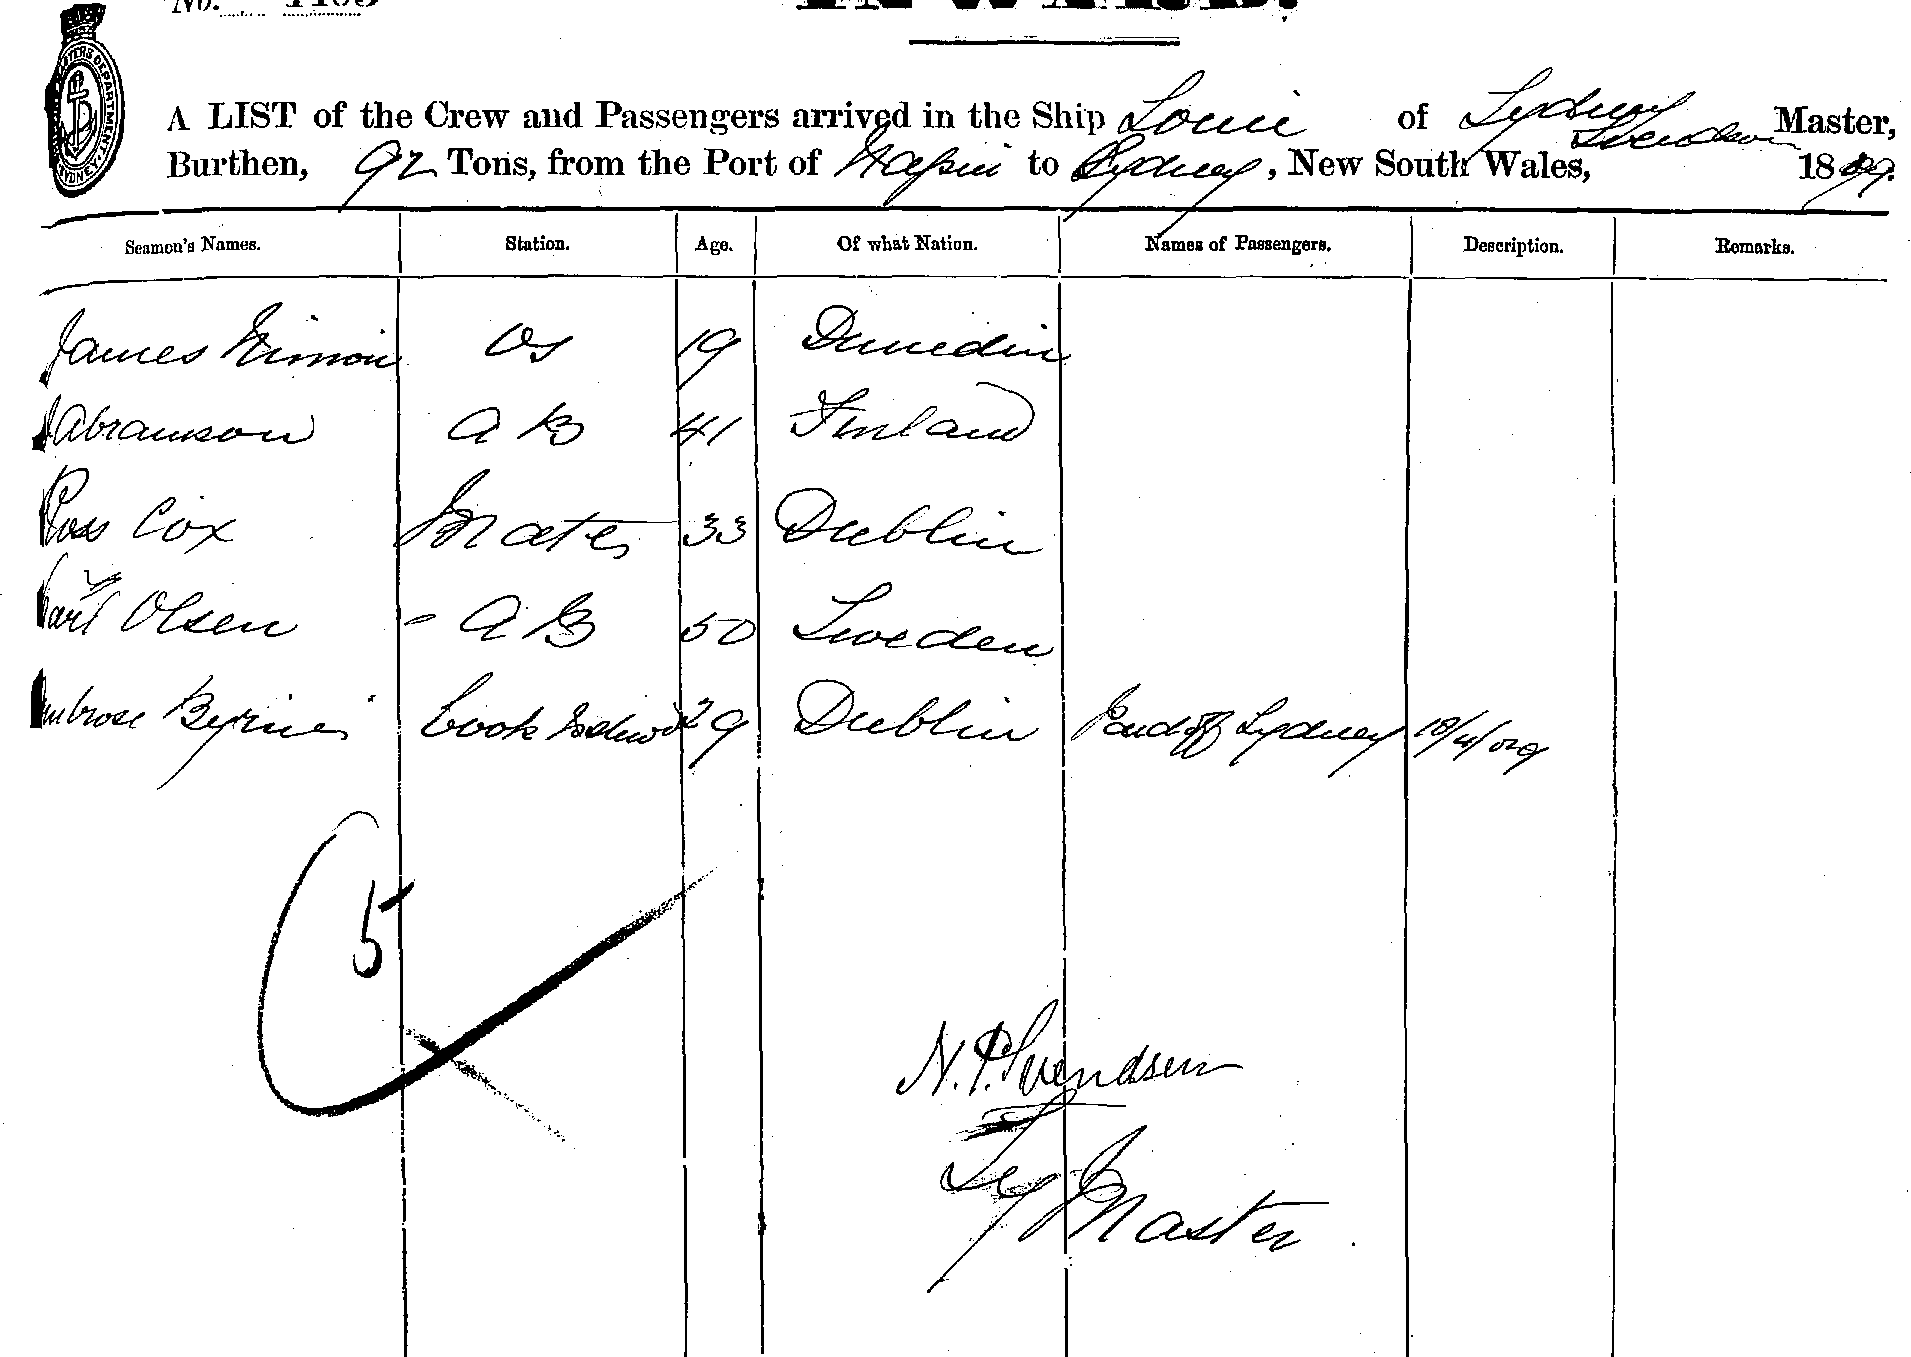 No.
INWARD.
A LIST of the Crew and Passengers arrived in the Ship Louie of Sydney Svendsen Master,
Burthen, 92 Tons, from the Port of to Sydney, New South Wales, 1889.
Seamen's Names. Station. Age. Of what Nation. Names of Passengers. Description. Remarks.
James OS 19 Dunedin
J Abramson A B 41 Finland
Ross Cox Mate 33 Dublin
Carl Olsen - A B 50 Sweden
Ambrose Byrnes Cook 29 Dublin Paid off Sydney
5
N. P. Svendsen
Master